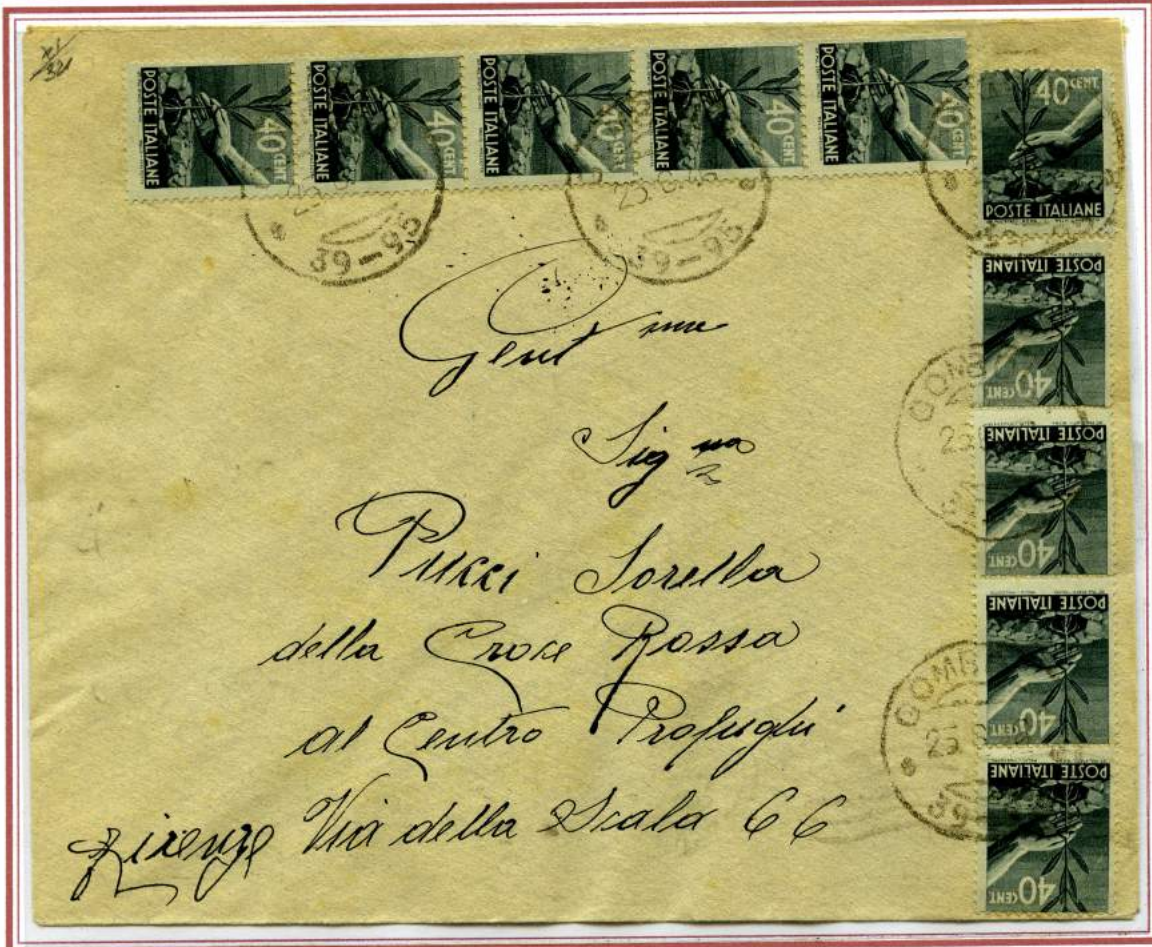 POSTE ITALIANE 40 CENT
POSTE ITALIANE 40 CENT
POSTE ITALIANE 40 CENT
POSTE ITALIANE 40 CENT
POSTE ITALIANE 40 CENT
40 CENT.
POSTE ITALIANE
POSTE ITALIANE
40 CENT
POSTE ITALIANE
40 CENT
POSTE ITALIANE
40 CENT
POSTE ITALIANE
40 CENT
39-95
25.6.46
39-95
Gent me
Sig na
Pucci Sorella
della Croce Rossa
al Centro Profughi
Firenze Via della Scala 66